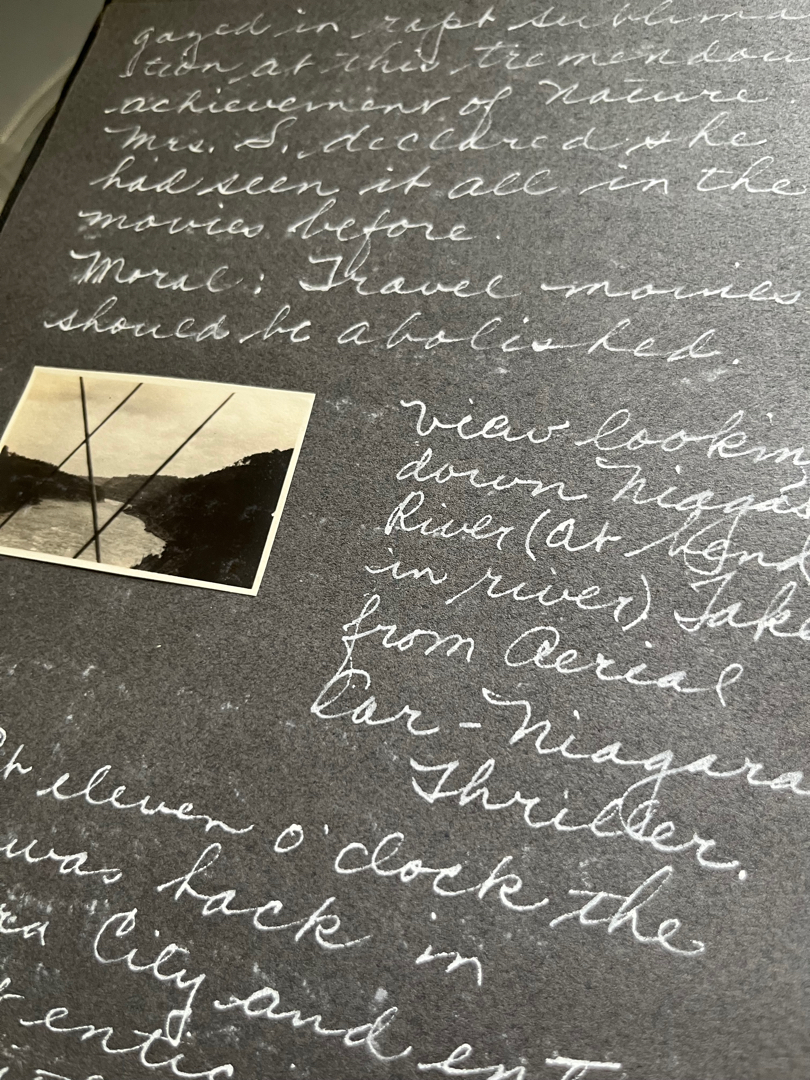 gazed in rapt sublima
tion at this tremendou
achievement of Nature.
Mrs. S. declared she
had seen it all in the
movies before.
Moral: Travel movies
should be abolished.
View lookin
down Niaga
River (at bend
in river) Take
from Aerial
Car - Niagara
Thriller.
At eleven o'clock the
was back in
ra City and
entic